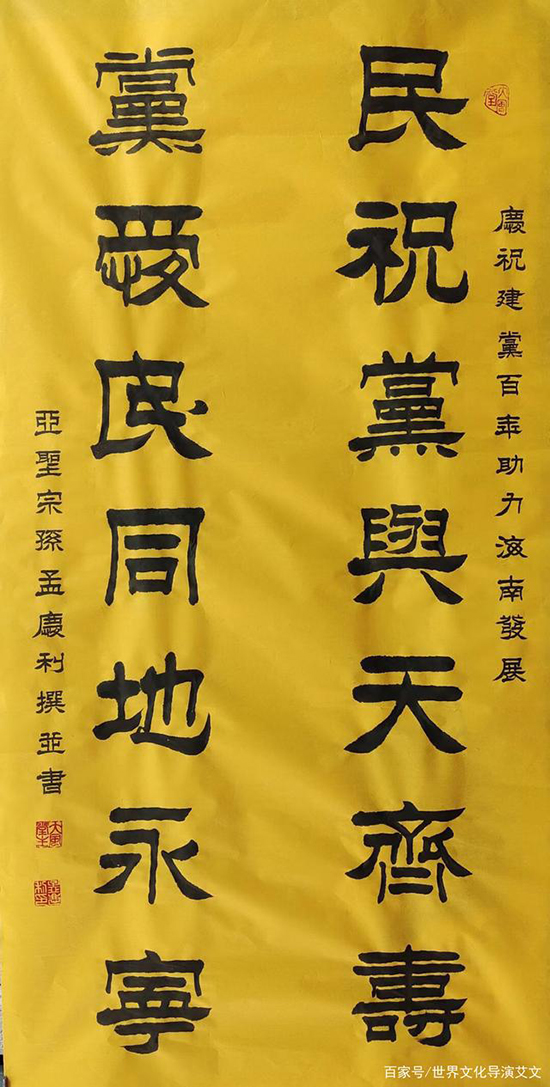 慶祝建黨百年助力海南發展
民祝黨與天齊壽
黨愛民同地永寧
亞聖宗孫孟慶利撰並書
百家号/世界文化导演艾文